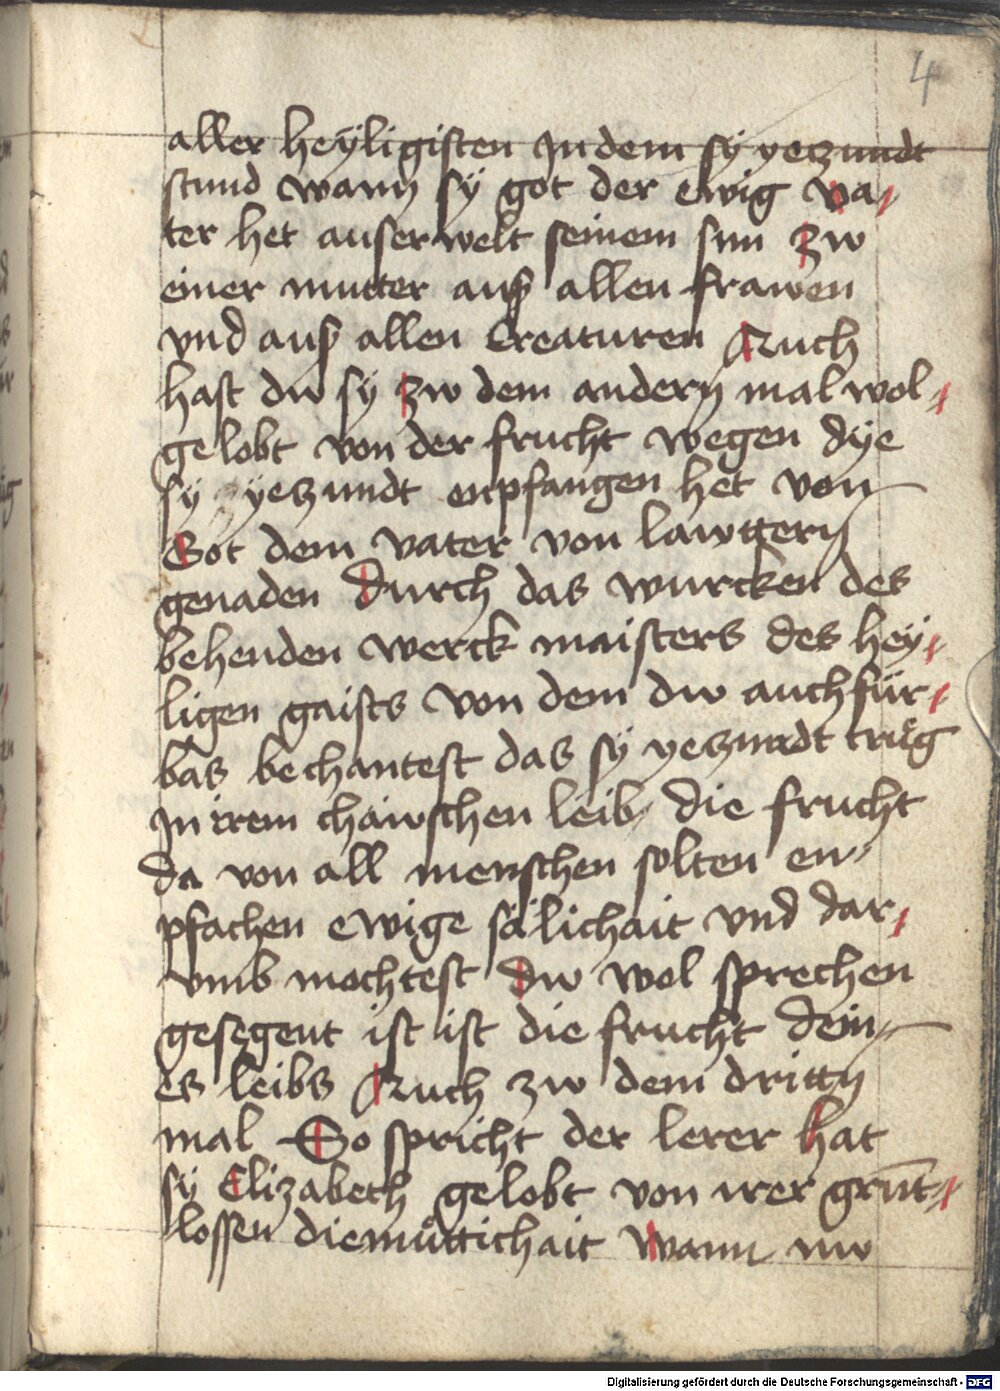 4
aller heyligisten In dem sy yeczundt
stund wann sy got der ewig va-
ter het auserwelt seinem sun zw
einer mutter auß allen frawen
vnd auß allen Creaturen Auch
hast dw sy zw dem andern mal wol-
gelobt von der frucht wegen dye
sy yeczundt enpfangen het von
Got dem vater von lawttern
genaden durch das wurcken des
behenden werck maisters des hey-
ligen gaists von dem dw auch für-
bas bechantest das sy yeczundt trüg
In irem chawschen leib die frucht
da von all menschen solten en-
pfachen ewige sälichait vnd dar-
vmb mochtest dw wol sprechen
gesegent ist ist die frucht dein-
es leibs Auch zw dem dritty
mal So spricht der lerer hat
sy Elizabeth gelobt von irer grūt-
lossen diemüttichait Wann nw
Digitalisierung gefördert durch die Deutsche Forschungsgemeinschaft - DFG